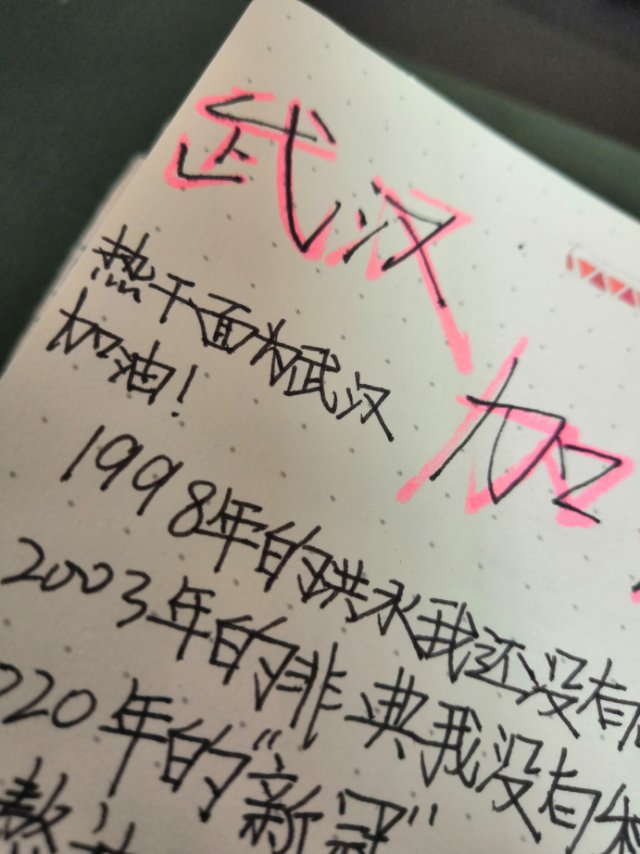 武汉加
热干面为武汉
加油！
1998年的洪水我还没有
2003年的非典我没有
220年的“新冠”